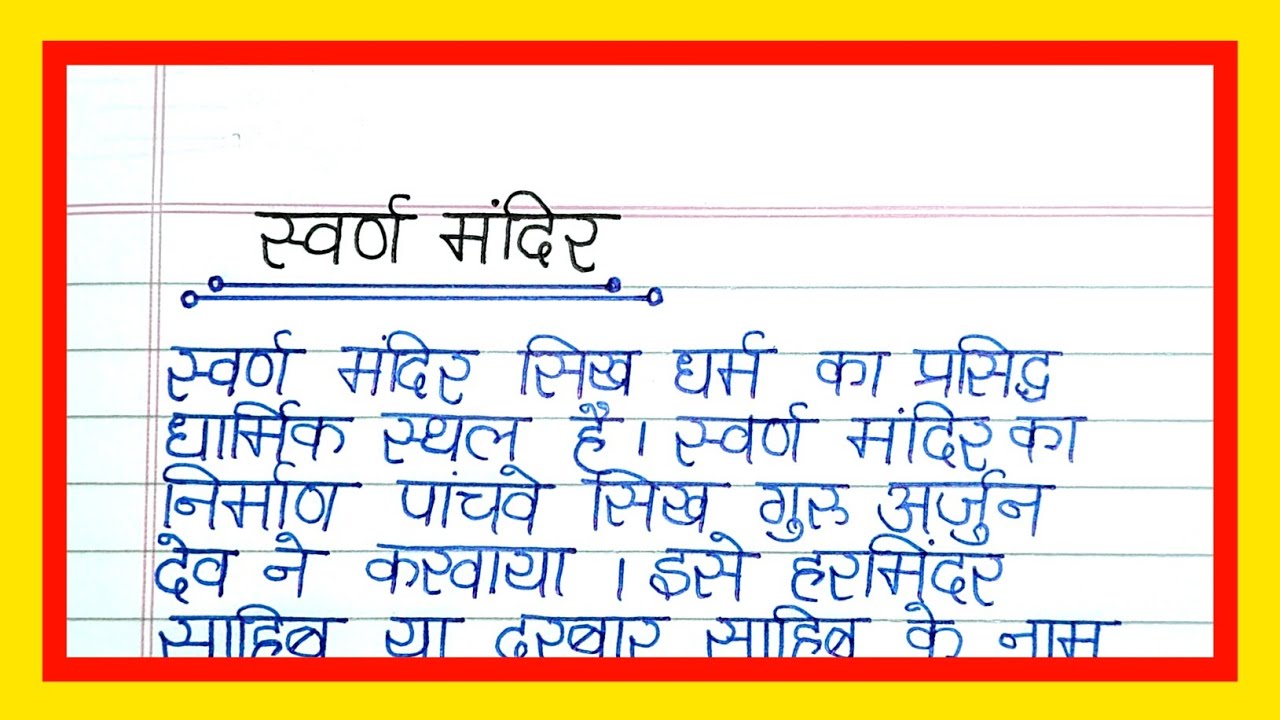 स्वर्ण मंदिर
स्वर्ण मंदिर सिख धर्म का प्रसिद्ध
धार्मिक स्थल है। स्वर्ण मंदिर का
निर्माण पांचवे सिख गुरु अर्जुन
देव ने करवाया । इसे हरमिंदर
साहिब या दरबार साहिब के नाम